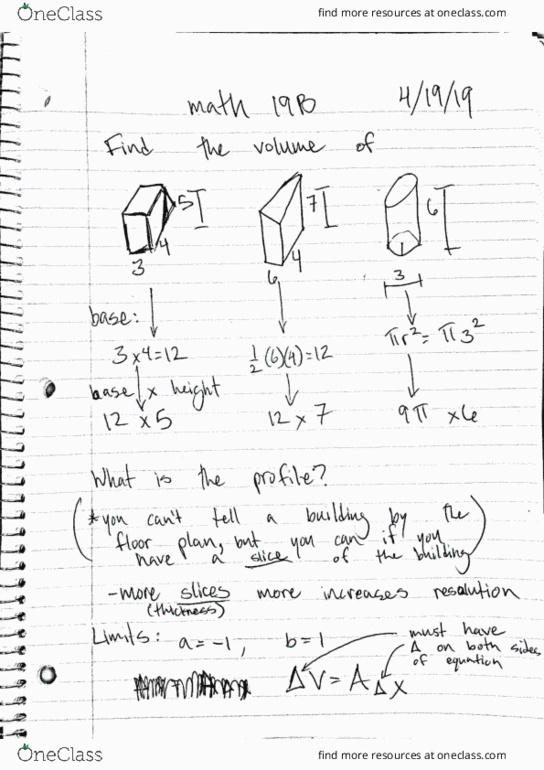 OneClass find more resources at oneclass.com
math 19B 4/19/19
Find the volume of
5 7 6
4 4
3 6 3
base:
3x4=12 ½(6)(4)=12 πr²= π3²
base x height
12 x 5 12 x 7 9π x6
What is the profile?
(*you can't tell a building by the
floor plan, but you can if you
have a slice of the building)
-more slices more increases resolution
(thickness)
Limits: a=-1, b=1 must have
Δ on both sides
of equation
ΔV = AΔx
OneClass find more resources at oneclass.com